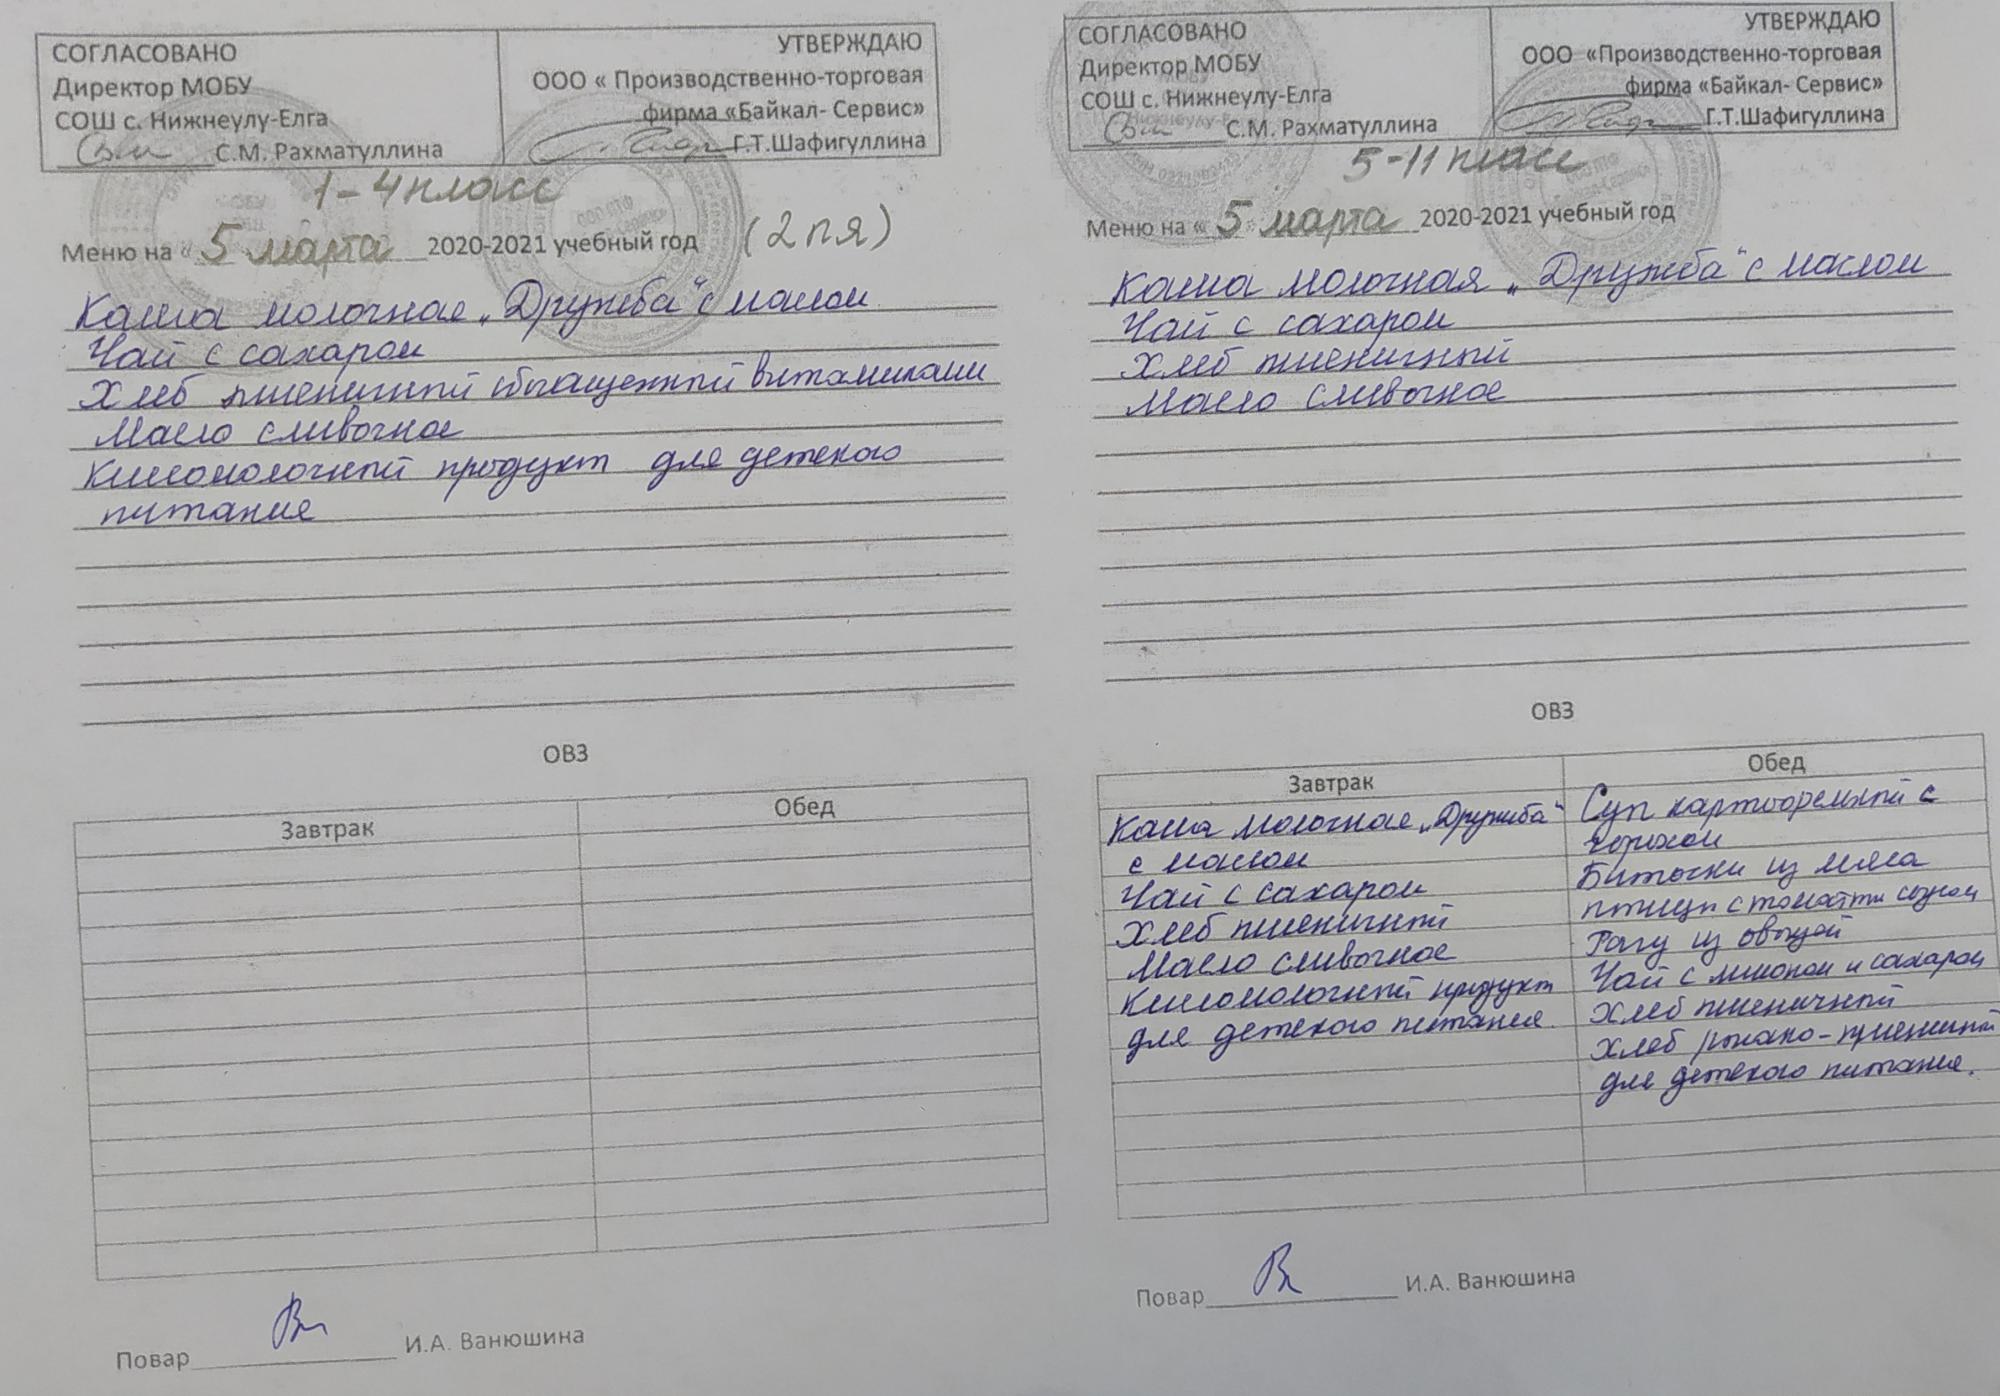 СОГЛАСОВАНО
Директор МОБУ
СОШ с. Нижнеулу-Елга
С.М. Рахматуллина
УТВЕРЖДАЮ
ООО « Производственно-торговая
фирма «Байкал- Сервис»
Г.Т.Шафигуллина
1-4 класс
Меню на « 5 марта 2020-2021 учебный год (2 пя)
Каша молочная „Дружба" с маслом
Чай с сахаром
Хлеб пшеничный обогащенный витаминами
Масло сливочное
Кисломолочный продукт для детского
питания
ОВЗ
Завтрак Обед
Повар И.А. Ванюшина
СОГЛАСОВАНО
Директор МОБУ
СОШ с. Нижнеулу-Елга
С.М. Рахматуллина
УТВЕРЖДАЮ
ООО «Производственно-торговая
фирма «Байкал- Сервис»
Г.Т.Шафигуллина
5-11 класс
Меню на « 5 марта 2020-2021 учебный год
Каша молочная „Дружба" с маслом
Чай с сахаром
Хлеб пшеничный
Масло сливочное
ОВЗ
Завтрак
Каша молочная „Дружба"
с маслом
Чай с сахаром
Хлеб пшеничный
Масло сливочное
Кисломолочный продукт
для детского питания
Обед
Суп картофельный с
горохом
Биточки из мяса
птицы с томатн соусом
Рагу из овощей
Чай с лимоном и сахаром
Хлеб пшеничный
Хлеб ржано-пшеничный
для детского питания.
Повар И.А. Ванюшина